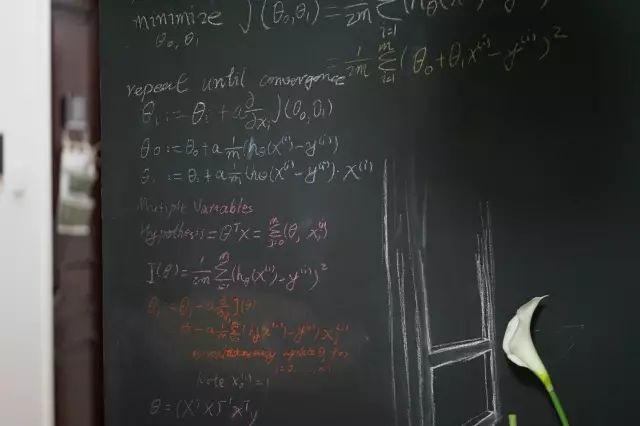 minimize J(θ₀,θ₁) = 1/2m Σ i=1 (hθ(x
θ₀, θ₁
= 1/2m Σ i=1 m (θ₀ + θ₁x⁽ⁱ⁾ − y⁽ⁱ⁾)²
repeat until convergence
θᵢ := θᵢ + a ∂/∂xᵢ J(θ₀,θ₁)
θ₀ := θ₀ + a 1/m (hθ(x⁽ⁱ⁾ − y⁽ⁱ⁾)
θᵢ := θᵢ + a 1/m (hθ(x⁽ⁱ⁾ − y⁽ⁱ⁾) · x⁽ⁱ⁾
Multiple Variables
Hypothesis = θᵀx = Σ j=0 m (θⱼ xⱼ⁽ⁱ⁾
J(θ) = 1/2m Σ i=1 m (hθ(x⁽ⁱ⁾ − y⁽ⁱ⁾)²
θⱼ := θⱼ − a ∂/∂ J(θ)
− a 1/m Σ (hθ(x⁽ⁱ⁾ − y⁽ⁱ⁾) xⱼ⁽ⁱ⁾
update θⱼ for
Note x₀⁽ⁱ⁾ = 1
θ = (XᵀX)⁻¹Xᵀy